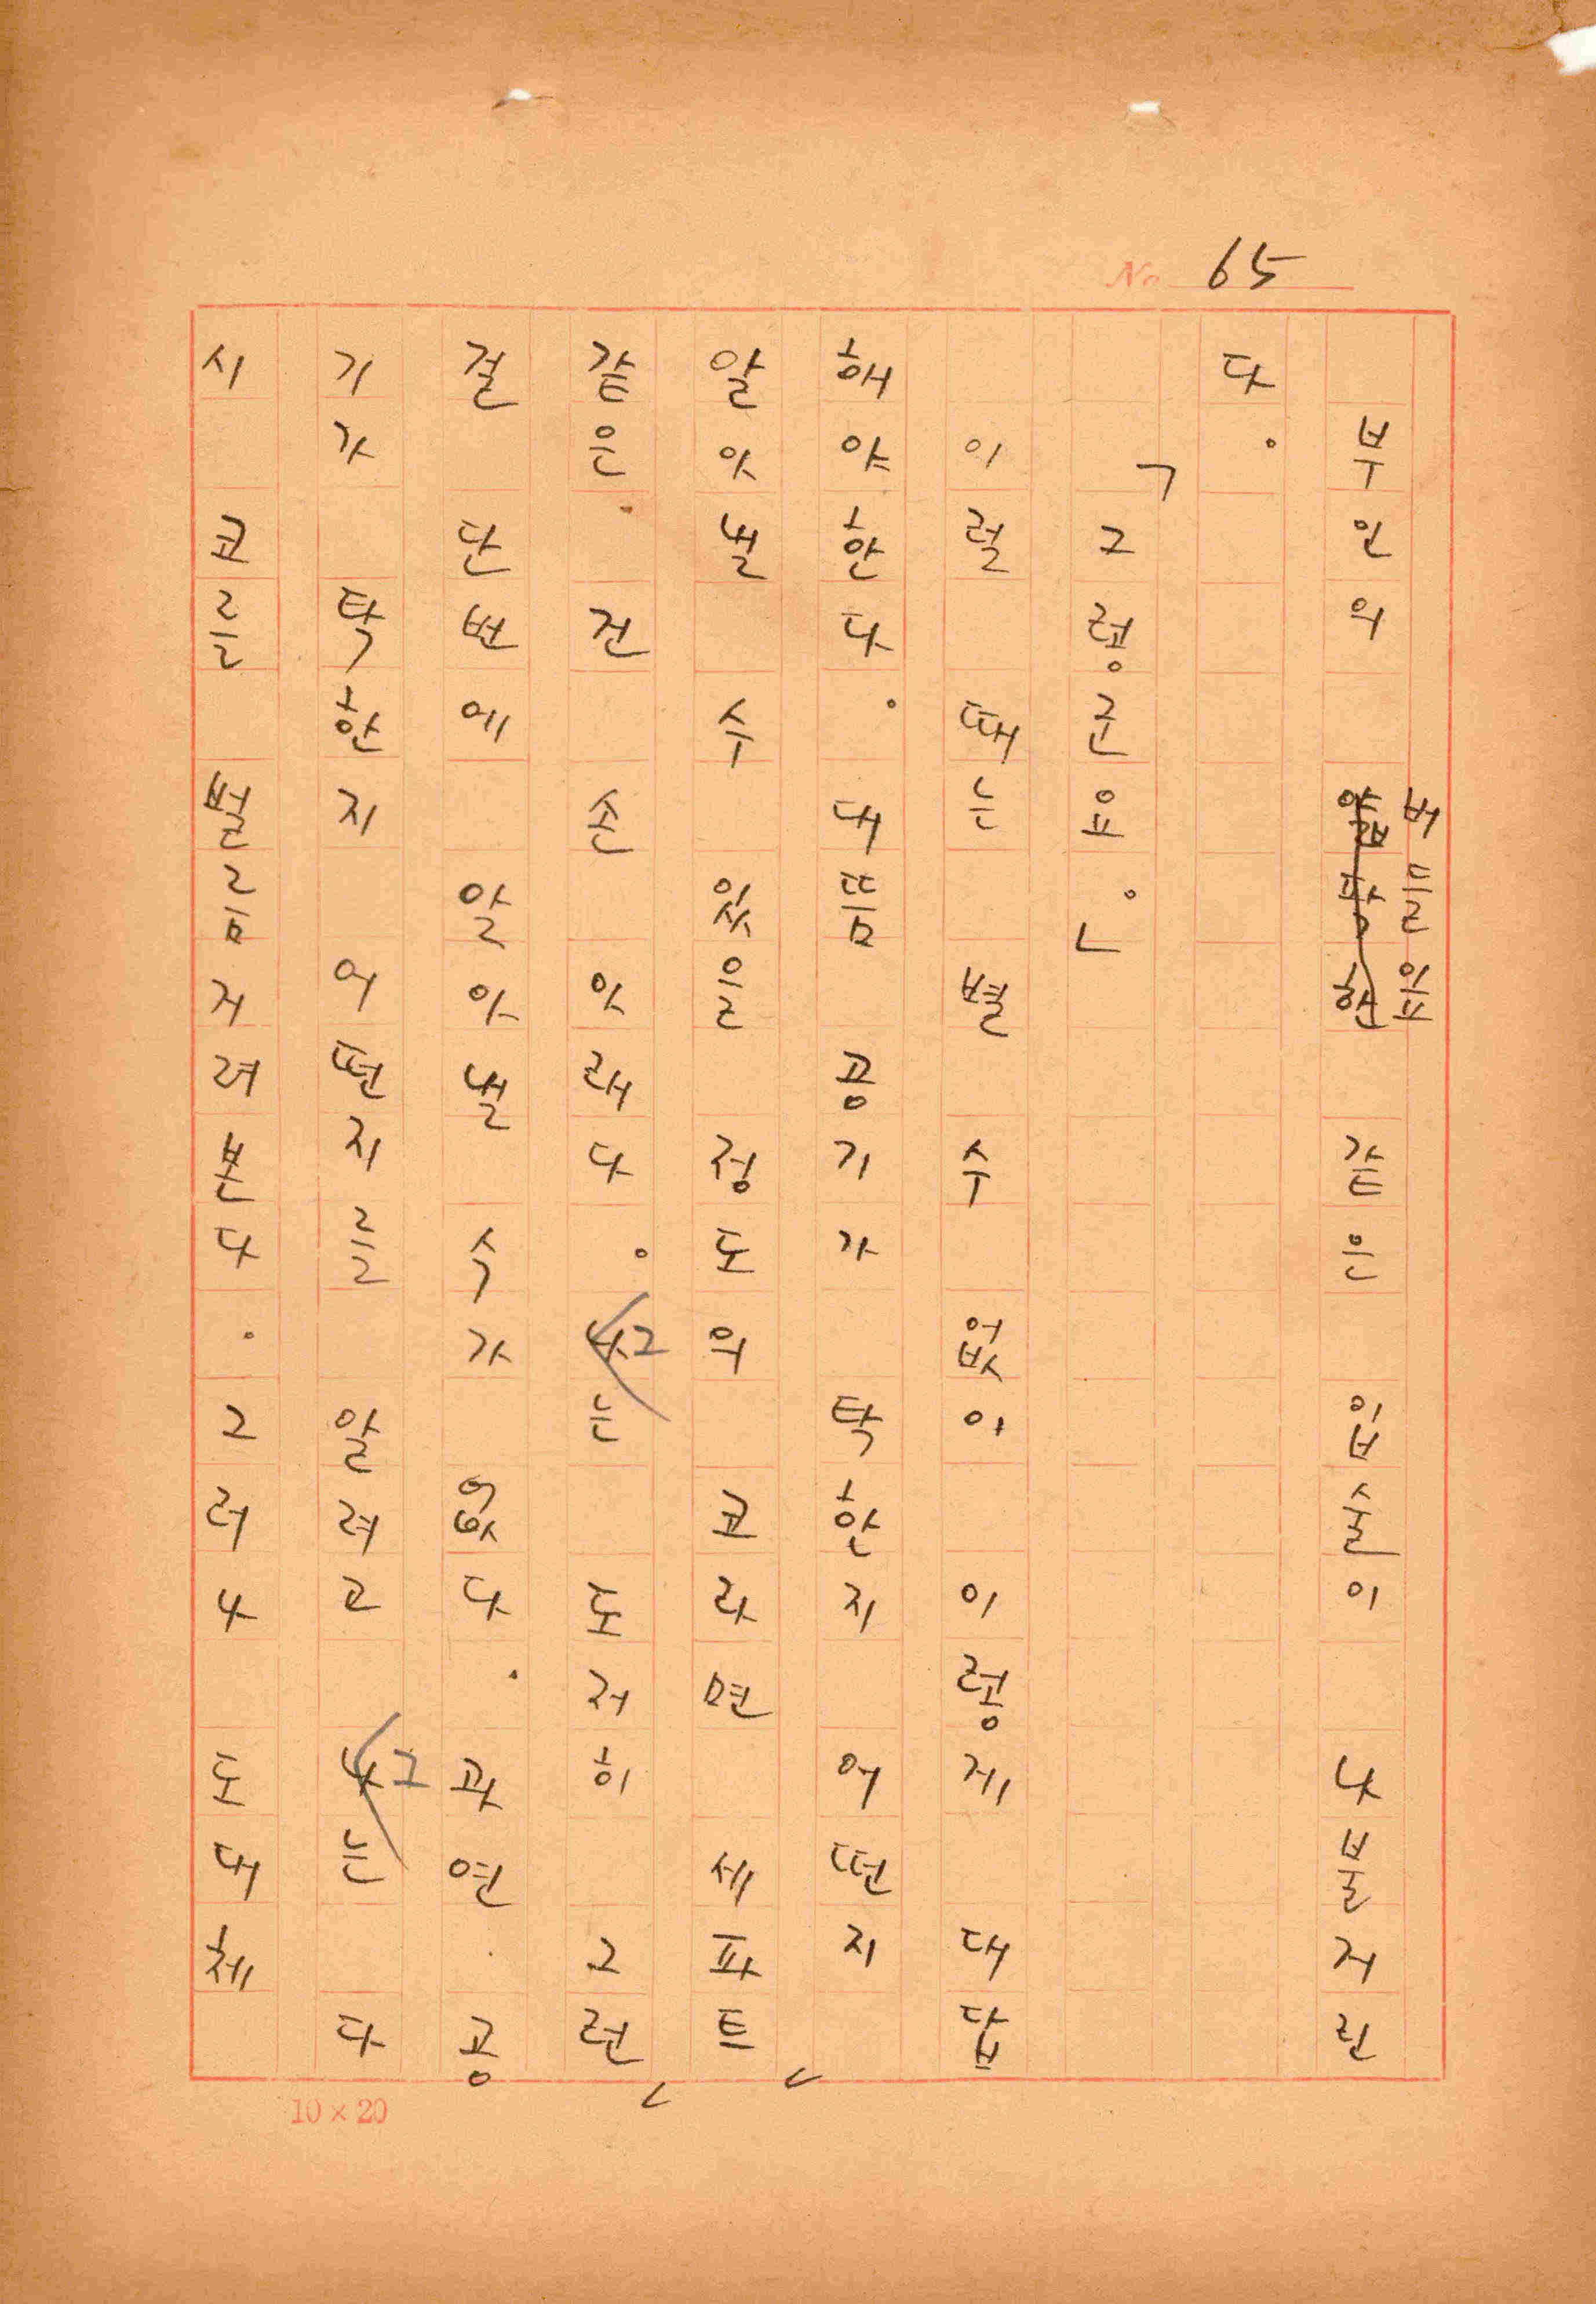 No. 65
부인의 버들잎 같은 입술이 나불거린
다.
「그렇군요.」
이럴 때는 별 수 없이 이렇게 대답
해야한다. 대뜸 공기가 탁한지 어떤지
알아낼 수 있을 정도의 코라면 세파트
같은 건 손아래다. 그는 도저히 그런
걸 단번에 알아낼 수가 없다. 과연 공
기가 탁한지 어떤지를 알려고 그는 다
시 코를 벌름거려본다. 그러나 도대체
10×20